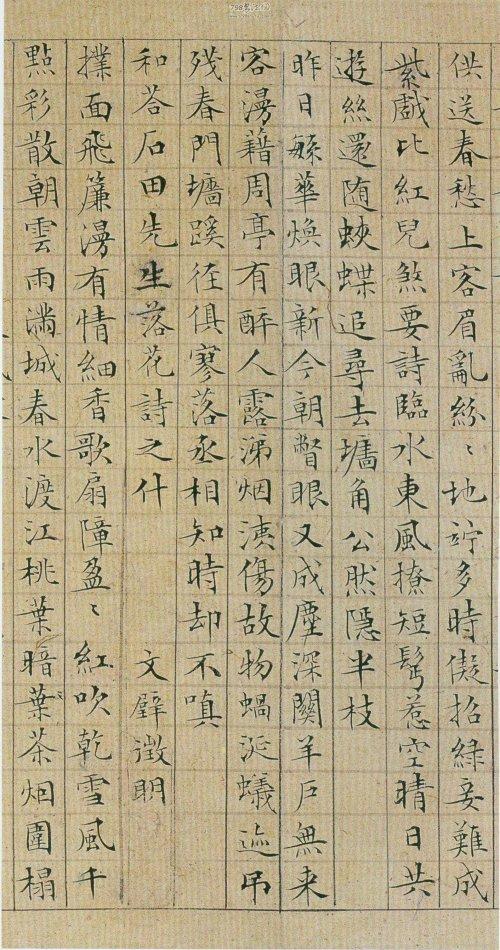 供送春愁上客眉亂紛〻地竚多時儗招綠妾難成
紫戲比紅兒煞要詩臨水東風撩短鬂惹空晴日共
遊絲還隨蛺蝶追尋去墻角公然隱半枝
昨日緐華煥眼新今朝瞥眼又成塵深關羊戶無来
客漫藉周亭有醉人露涕烟洟傷故物蝸涎蟻迹吊
残春門墻蹊徑俱寥落丞相知時却不嗔
和荅石田先生落花詩之什 文壁徵明
撲面飛簾漫有情細香歌扇障盈〻紅吹乾雪風千
點彩散朝雲雨滿城春水渡江桃葉暗葉茶烟圍榻